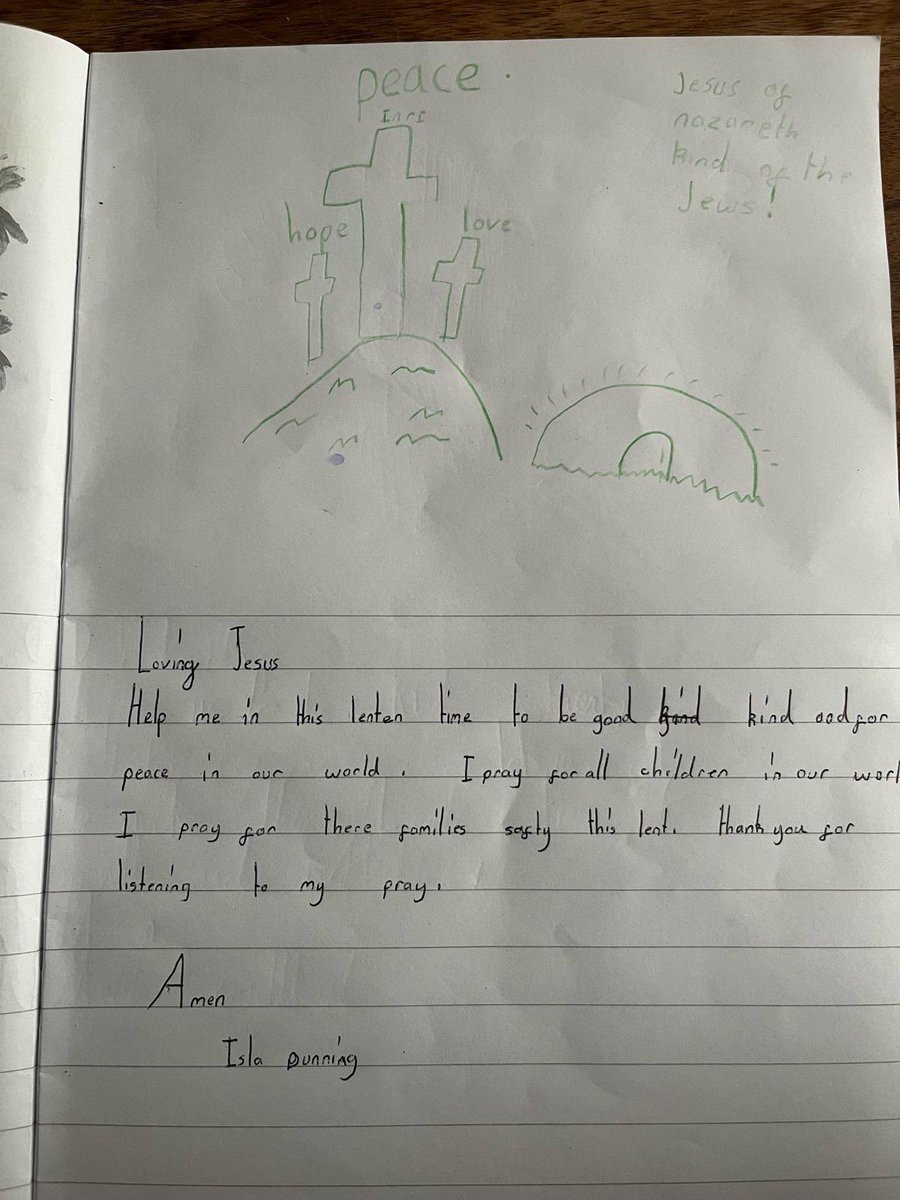 peace.
InrI
hope
love
Jesus of
nazareth
kind of the
Jews!
Loving Jesus
Help me in this lenten time to be good kind kind and for
peace in our world. I pray for all children in our worl
I pray for there families safty this lent. thank you for
listening to my pray.
Amen
Isla Dunning